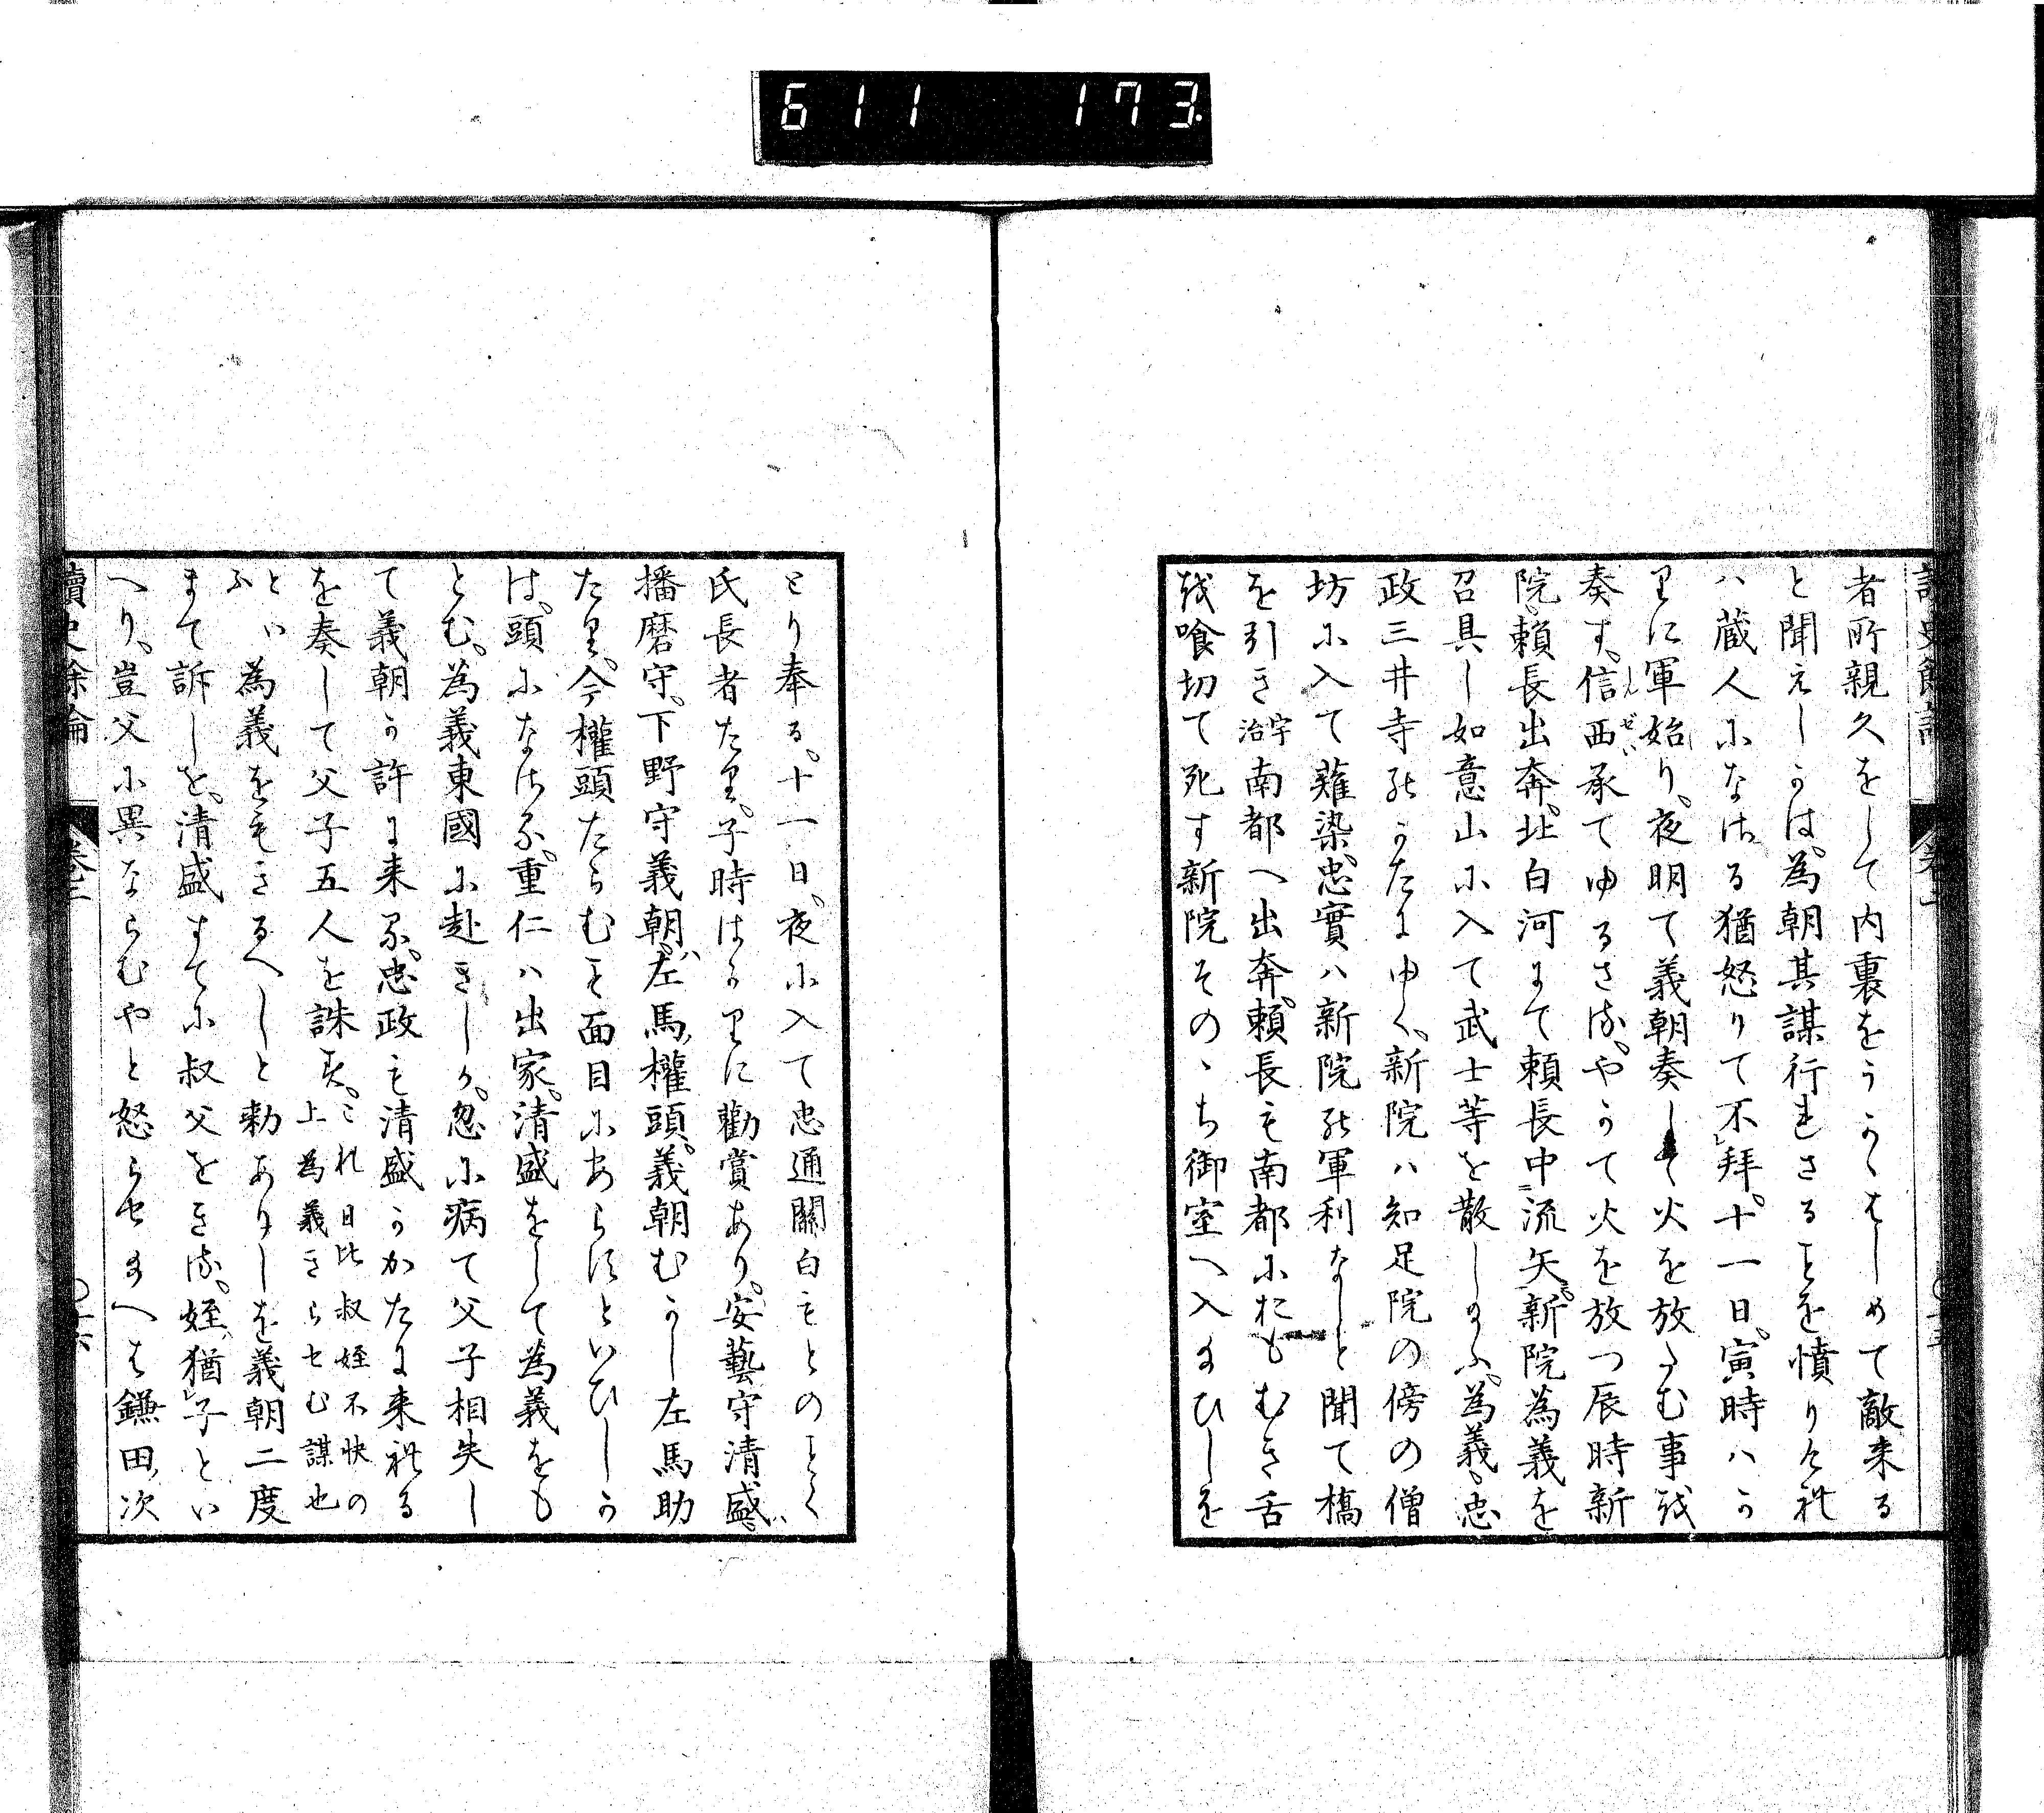 611 173
者所親久をして内裏をうかゝはしめて敵来る
と聞えしかは、為朝其謀行れさることを憤りけれ
ハ蔵人になさる猶怒りて不拜。十一日、寅時ハか
りに軍始り、夜明て義朝奏して火を放たむ事を
奏す。信西承てゆるさる。やかて火を放つ辰時新
院、頼長出奔。北白河にて頼長中流矢。新院為義を
召具し如意山に入て武士等を散し給ふ。為義、忠
政三井寺のかたにゆく、新院ハ知足院の傍の僧
坊に入て薙染、忠實ハ新院の軍利なしと聞て橋
を引き宇治南都へ出奔。頼長も南都におもむき舌
を喰切て死す新院そのゝち御室へ入給ひしを
とり奉る。十一日、夜に入て忠通關白もとのことく
氏長者たり。子時はかりに勸賞あり。安藝守清盛ハ
播磨守。下野守義朝ハ左馬權頭。義朝むかし左馬助
たり。今權頭たらむも面目にあらすといひしか
は、頭になさる。重仁ハ出家。清盛をして為義をも
とむ。為義東國に赴きしか、忽に病て父子相失し
て義朝か許に来る。忠政も清盛かかたに来れる
を奏して父子五人を誅す。これ日比叔姪不快の
上為義きらせむ謀也
といふ 為義をもきるへしと勅ありしを義朝二度
まて訴しを、清盛すてに叔父をきる。姪猶子とい
へり、豈父に異ならむやと怒らせ給へは鎌田次
讀史餘論 卷二